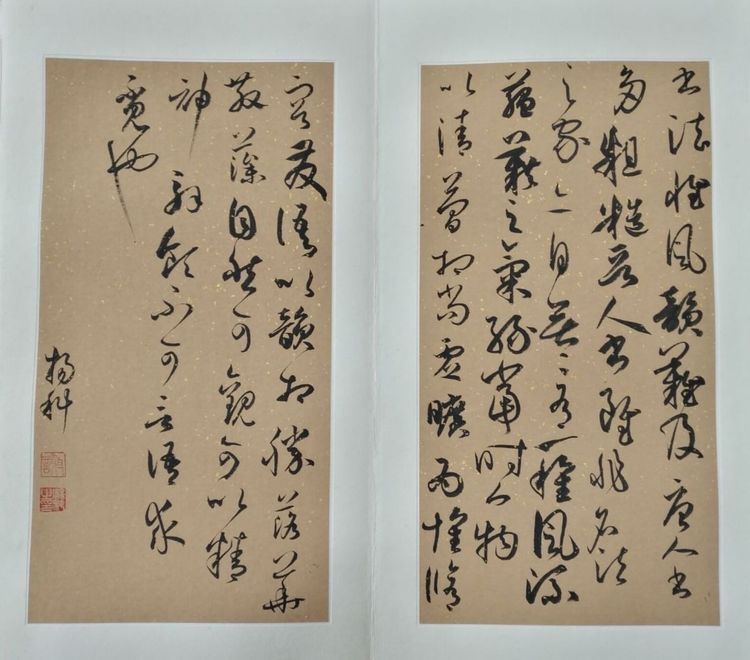 書法惟風韻難及唐人書
多粗糙晉人書雖非名法
之家亦自奕奕有一種風流
蘊藉之氣緣當時人物
以清簡相尚虛曠為懷修
容發語以韻相勝落華
散藻自然可觀可以精
神解領不可言語求
覓也
楊科